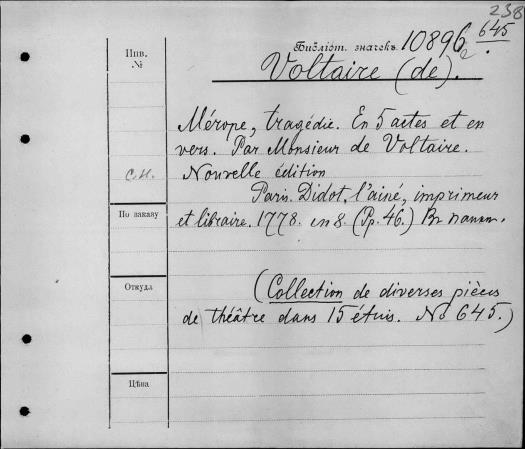 238
Инв.
№
Библіот. значекъ 10896 645
2
Voltaire (de).
Mérope, tragédie. En 5 actes et en
vers. Par Monsieur de Voltaire.
С.Н. Nouvelle édition
Paris. Didot, l'ainé, imprimeur
По заказу
et libraire. 1778. in 8. (Pp. 46.) Въ папкѣ.
Откуда
(Collection de diverses pièces
de théâtre dans 15 étuis. No 645.)
Цѣна